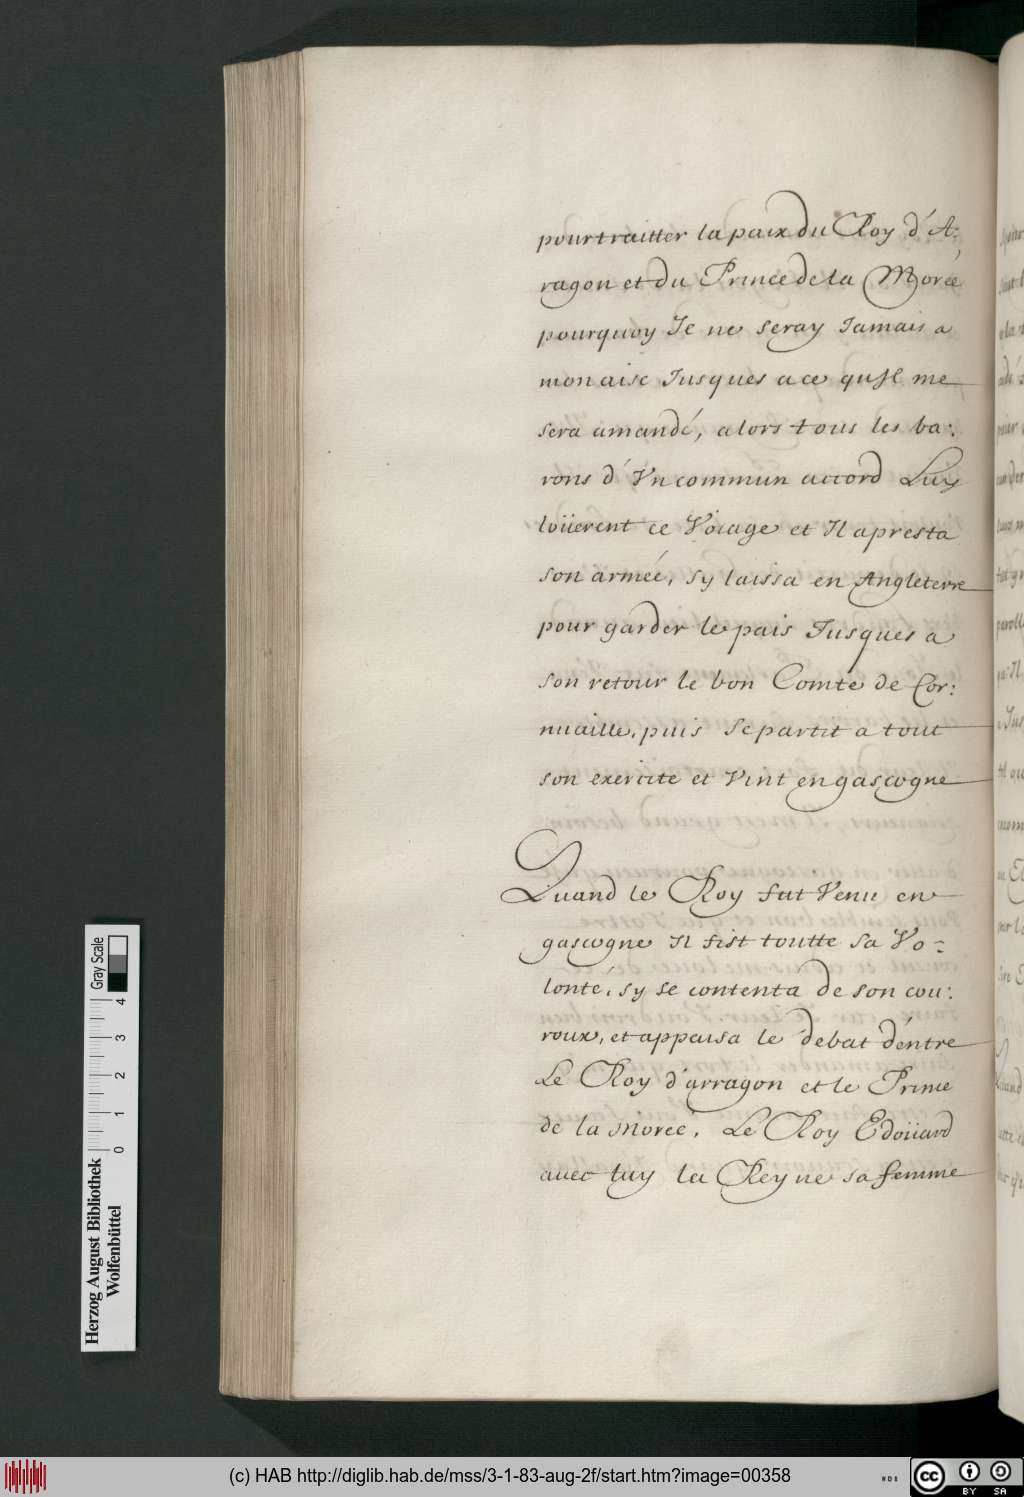 pour traitter la paix du Roy d'A:
ragon et du Prince de la Morée
pourquoy Je ne seray Jamais a
mon aise Jusques a ce qu'Il me
sera amandé, alors tous les ba:
rons d'Vn commun accord Luy
loüerent ce Voiage et Il apresta
son armée, sy laissa en Angleterre
pour garder le pais Jusques a
son retour le bon Comte de Cor:
nuaille, puis se partit a tout
son exercite et Vint en gascogne
Quand le Roy fut Venu en
gascogne Il fist toutte sa Vo:
lonté, sy se contenta de son cou:
roux, et appaisa le debat d'entre
Le Roy d'arragon et le Prince
de la Moree, Le Roy Edoüard
avec luy la Reyne sa femme
Herzog August Bibliothek
Wolfenbüttel
Gray Scale
0 1 2 3 4
(c) HAB http://diglib.hab.de/mss/3-1-83-aug-2f/start.htm?image=00358
WDB
cc BY SA